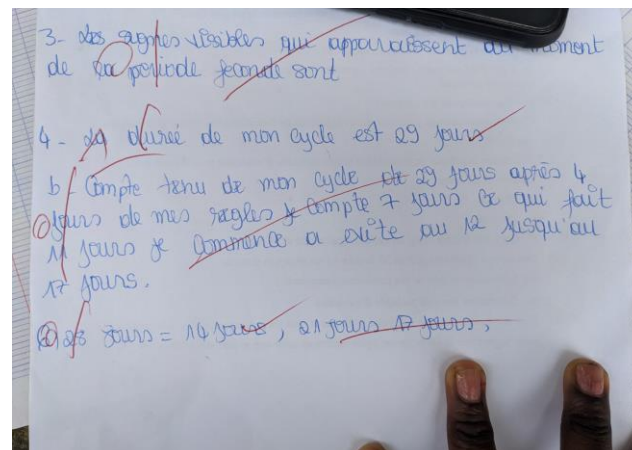 3- Les signes visibles qui apparaissent au moment
de la période feconde sont
4- La dureé de mon cycle est 29 jours
b- Compte tenu de mon cycle de 29 jours après 4
jours de mes règles je compte 7 jours ce qui fait
11 jours je commence a evite au 12 jusqu'au
17 jours.
28 jours = 14 jours, 21 jours 17 jours,